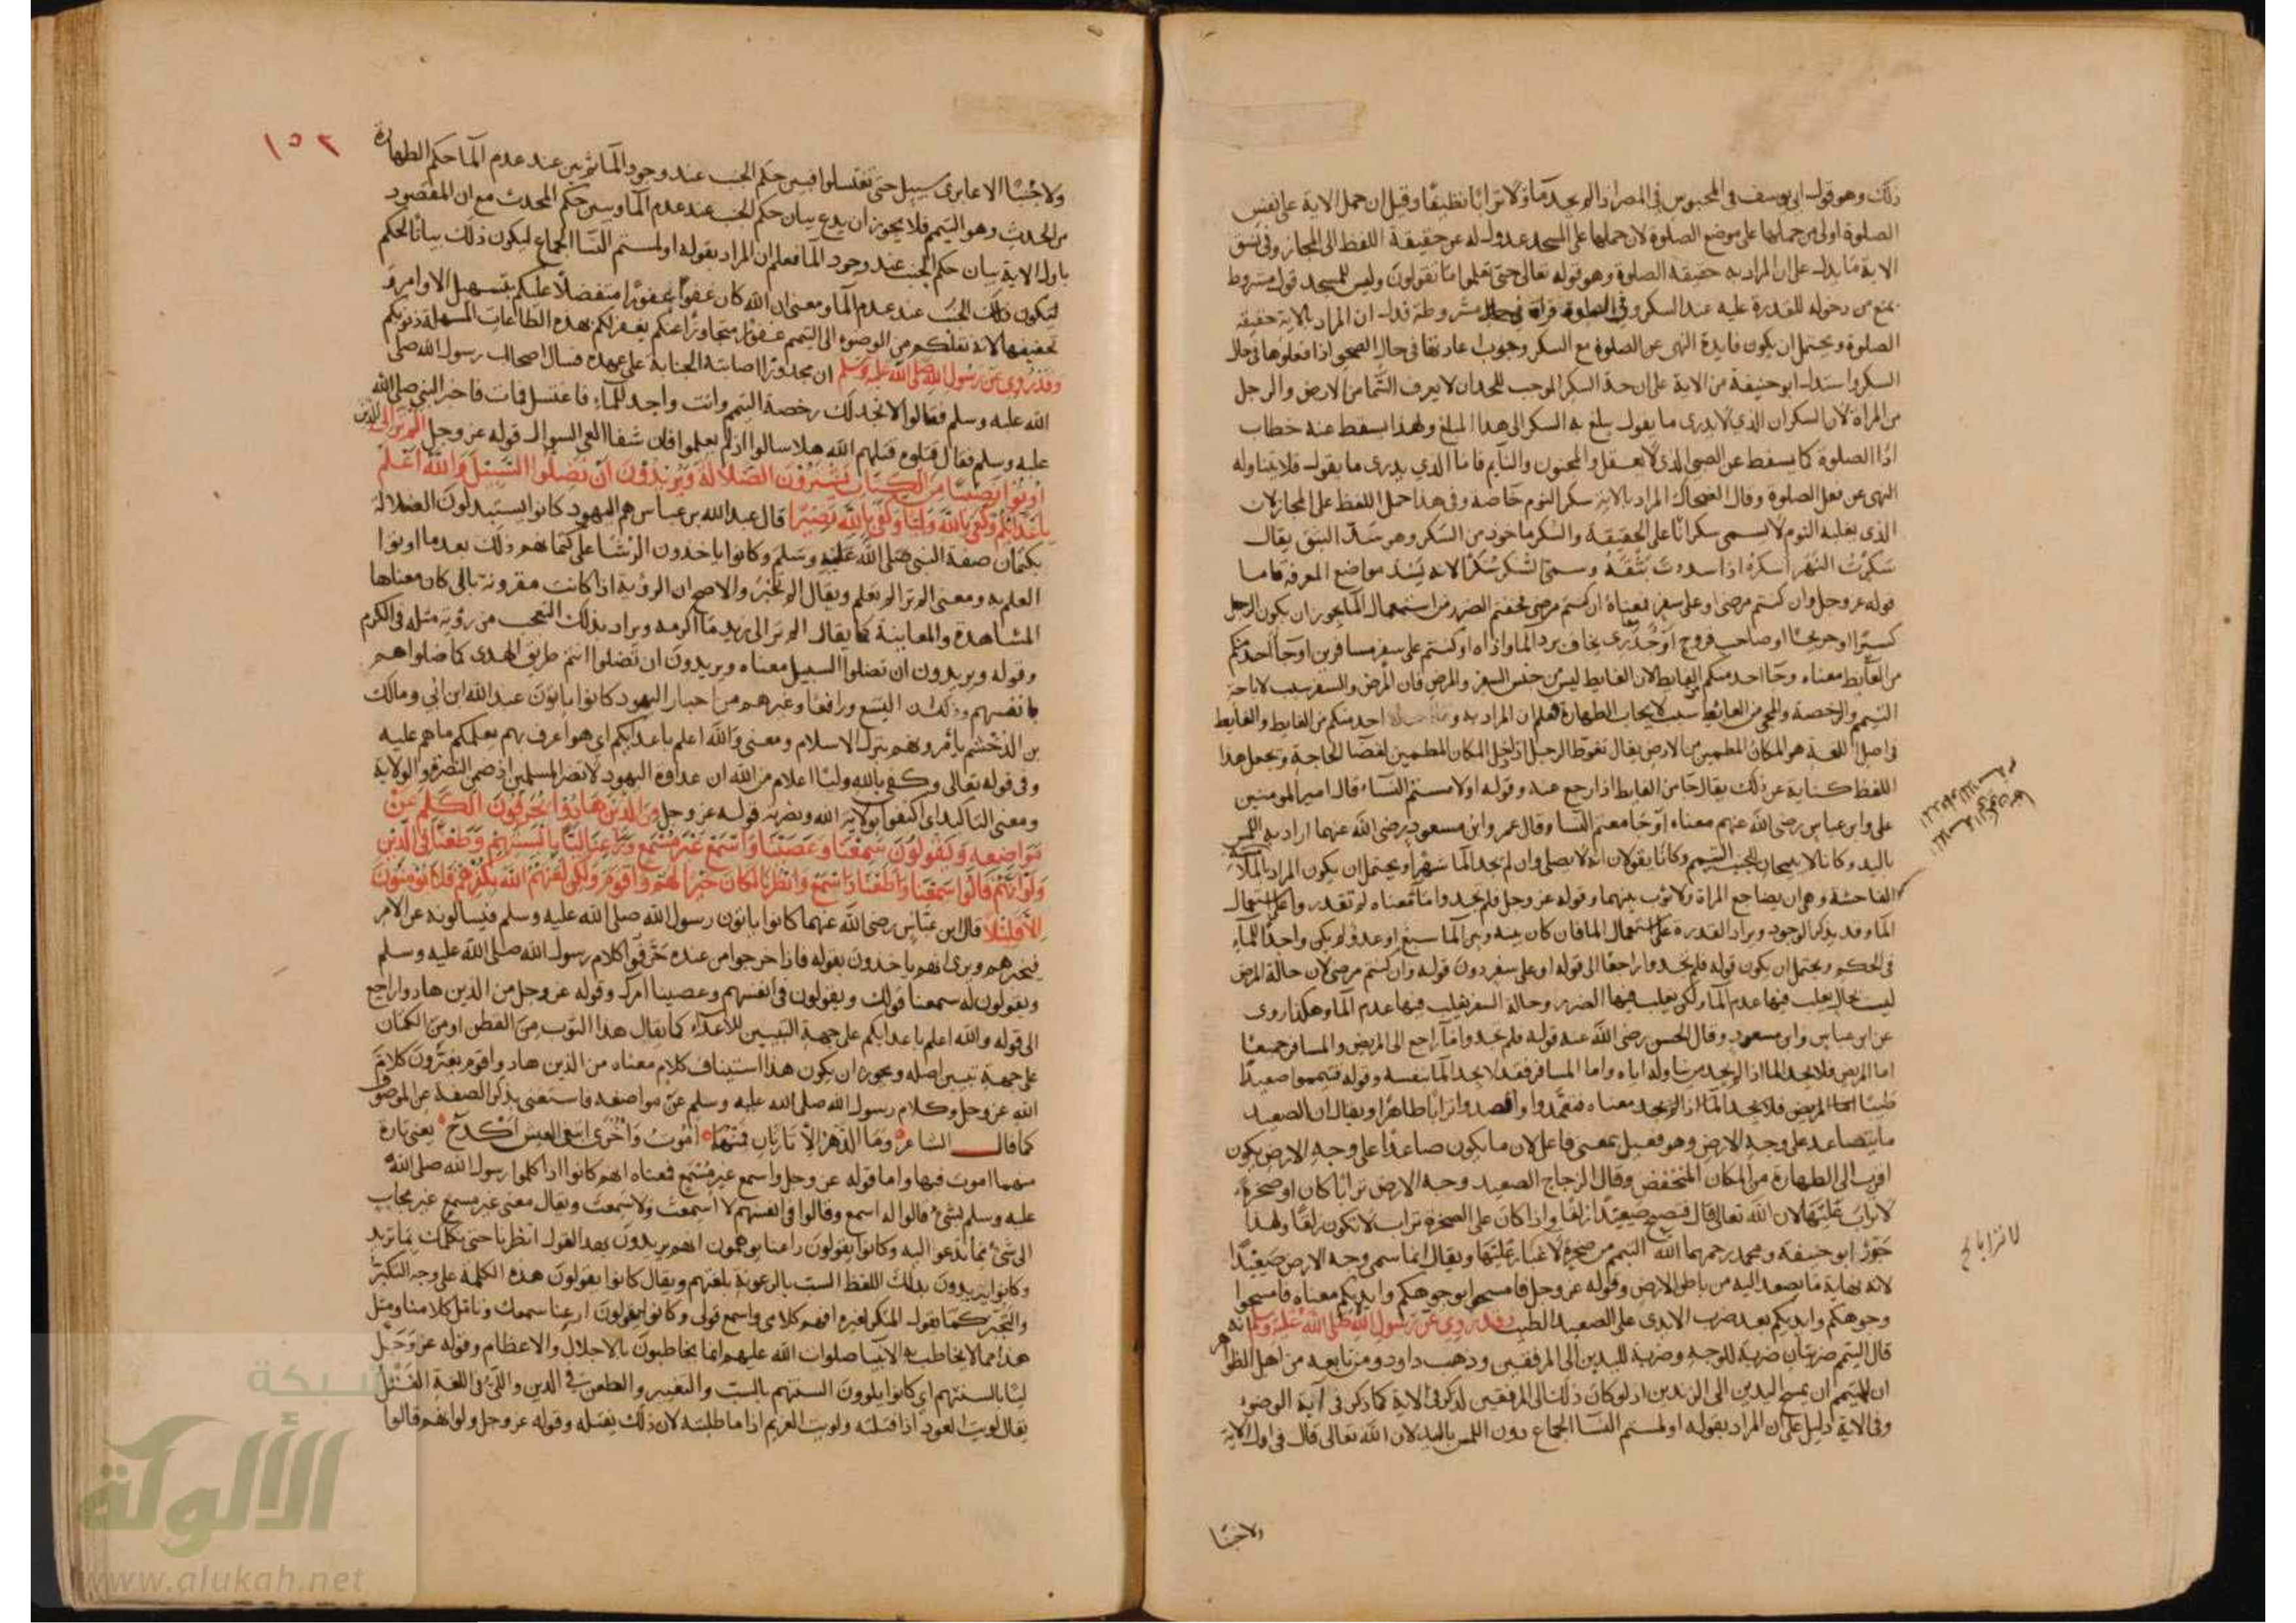 ذلك وهو قول ابى يوسف فى المحبوس فى المصر اذا لم يجد ما ولا ترابا نظيفا وقيل ان حمل الاية على نفس
الصلوة اولى من حملها على موضع الصلوة لان حملها على المسجد عدول له عن حقيقة اللفظ الى المجاز وفى نسق
الاية ما يدل على ان المراد به حقيقة الصلوة وهو قوله تعالى حتى تعلموا ما تقولون وليس للمسجد قول مشروط
يمنع من دخوله للقدرة عليه عند السكر وفى الصلوة قراة مشروطة فدل ان المراد بالاية حقيقة
الصلوة ويحتمل ان يكون فايدة النهى عن الصلوة مع السكر وجوب اعادتها فى حال الصحو اذا فعلوها فى حال
السكر واستدل ابو حنيفة من الاية على ان حد السكر الموجب للحد ان لا يعرف السما من الارض والرجل
من المراة لان السكران الذي لا يدرى ما يقول يبلغ به السكر الى هذا المبلغ ولهذا يسقط عنه خطاب
ادا الصلوة كما يسقط عن الصبى الذي لا يعقل والمجنون والنايم فاما الذي يدرى ما يقول فلا يتناوله
النهى عن فعل الصلوة وقال الضحاك المراد بالاية سكر النوم خاصة وفى هذا حمل اللفظ على المجاز لان
الذى يغلبه النوم لا يسمى سكرانا على الحقيقة والسكر ماخوذ من السكر وهو سد البثق يقال
سكرت النهر اسكره اذا سددت بثقه وسمى السكر سكرا لانه يسد مواضع المعرفة فاما
قوله عز وجل وان كنتم مرضى او على سفر فمعناه ان كنتم مرضى فخفتم الضرر من استعمال الما يجوز ان يكون الرجل
كسيرا او جريحا او صاحب قروح او جدرى يخاف برد الما واذاه او كنتم على سفر مسافرين او جا احد منكم
من الغايط معناه وجا احد منكم من الغايط لان الغايط ليس من جنس السفر والمرض فان المرض والسفر سبب لاباحة
التيمم والرخصة والمجى من الغايط سبب لايجاب الطهارة فعلم ان المراد به احد منكم من الغايط والغايط
فى اصل اللغة هو المكان المطمين من الارض يقال تغوط الرجل اذا دخل المكان المطمين لقضا الحاجة وتجعل هذا
اللفظ كناية عن ذلك يقال جا من الغايط اذا رجع عنه وقوله او لامستم النساء قال امير المومنين
على وابن عباس رضى الله عنهم معناه او جامعتم النسا وقال عمر وابن مسعود رضى الله عنهما اراد به اللمس
باليد وكانا لا يبيحان للجنب التيمم وكانا يقولان انه لا يصلى وان لم يجد الما شهرا ويحتمل ان يكون المراد
الفاحشة وهى ان يضاجع المراة ولا ثوب بينهما وقوله عز وجل فلم تجدوا ما فمعناه لم تقدروا على استعمال
الما وقد يذكر الوجود ويراد القدرة على استعمال الما فان كان بينه وبين الما سبع او عدو لم يكن واجدا للماء
فى الحكم ويحتمل ان يكون قوله فلم تجدوا راجعا الى قوله او على سفر دون قوله وان كنتم مرضى لان حالة المرض
ليست بحال يغلب فيها عدم الما ولكن يغلب فيها الضرر وحالة السفر يغلب فيها عدم الما وهكذا روى
عن ابن عباس وابن مسعود وقال الحسن رضى الله عنه قوله فلم تجدوا ما راجع الى المريض والمسافر جميعا
اما المريض فلا يجد الما اذا لم يجد من يناوله اياه واما المسافر فقد لا يجد الما بنفسه وقوله فتيمموا صعيدا
طيبا معناه فتعمدوا واقصدوا ترابا طاهرا ويقال ان الصعيد
ما يتصاعد على وجه الارض وهو فعيل بمعنى فاعل لان ما يكون صاعدا على وجه الارض يكون
اقرب الى الطهارة من المكان المنخفض وقال الزجاج الصعيد وجه الارض ترابا كان او صخرة
لا تراب عليها لان الله تعالى قال فتصبح صعيدا زلقا واذا كان على الصخرة تراب لا تكون زلقا ولهذا
جوز ابو حنيفة ومحمد رحمهما الله التيمم من صخرة لا غبار عليها ويقال انما سمى وجه الارض صعيدا
لانه نهاية ما يصعد اليه من باطن الارض وقوله عز وجل فامسحوا بوجوهكم وايديكم معناه فامسحوا
وجوهكم وايديكم بعد ضرب الايدى على الصعيد الطيب وقد روى عن رسول الله صلى الله عليه وسلم انه
قال التيمم ضربتان ضربة للوجه وضربة لليدين الى المرفقين وذهب داود ومن تابعه من اهل الظواهر
ان التيمم ان يمسح اليدين الى الزندين اذ لو كان ذلك الى المرفقين لذكر فى الاية كما ذكر فى آية الوضوء
وفى الاية دليل على ان المراد بقوله او لمستم النسا الجماع دون اللمس باليد لان الله تعالى قال فى اول الاية
ولا جنبا
١٥٢
ولا جنبا الا عابرى سبيل حتى تغتسلوا فبين حكم الجنب عند وجود الما ثم بين عند عدم الما حكم الطهارة
من الحدث وهو التيمم فلا يجوز ان يدع بيان حكم الجنب عند عدم الما وبين حكم المحدث مع ان المقصود
باول الاية بيان حكم الجنب عند وجود الما فعلم ان المراد بقوله او لمستم النسا الجماع ليكون ذلك بيانا لحكم
الجنب عند عدم الما ومعنى ان الله كان عفوا غفورا متفضلا عليكم بتسهيل الاوامر و
تخفيفها لانه نقلكم من الوضوء الى التيمم غفورا متجاوزا عنكم يغفر لكم بهذه الطاعات المسهلة ذنوبكم
وقد روى عن رسول الله صلى الله عليه وسلم ان مجدورا اصابته الجنابة على عهده فسال اصحاب رسول الله صلى
الله عليه وسلم فقالوا لا نجد لك رخصة التيمم وانت واجد للماء فاغتسل فمات فاخبر النبى صلى الله
عليه وسلم فقال قتلوه قتلهم الله هلا سالوا اذ لم يعلموا فان شفا العى السوال قوله عز وجل الم تر الى الذين
اوتوا نصيبا من الكتاب يشترون الضلالة ويريدون ان تضلوا السبيل والله اعلم
باعدائكم وكفى بالله وليا وكفى بالله نصيرا قال عبد الله بن عباس هم اليهود كانوا يستبدلون الضلالة
بكتمان صفة النبى صلى الله عليه وسلم وكانوا ياخذون الرشا على كتمانهم وذلك بعد ما اوتوا
العلم به ومعنى الم تر الم تعلم ويقال الم تخبر والاصح ان الروية اذا كانت مقرونة بالى كان معناها
المشاهدة والمعاينة كما يقال الم تر الى زيد ما اكرمه ويراد بذلك التعجب من روية مثله فى الكرم
وقوله ويريدون ان تضلوا السبيل معناه ويريدون ان تضلوا انتم طريق الهدى كما ضلوا هم
بانفسهم وذلك ان اليسع ورافعا وغيرهم من احبار اليهود كانوا ياتون عبد الله ابن ابي ومالك
بن الدخشم يامرونهم بترك الاسلام ومعنى والله اعلم باعدائكم اى هو اعرف بهم يعلمكم ما هم عليه
وفى قوله تعالى وكفى بالله وليا اعلام من الله ان عداوة اليهود لا تضر المسلمين اذ ضمن النصرة والولاية
ومعنى التاكيد اى اكتفوا بولاية الله ونصرته قوله عز وجل من الذين هادوا يحرفون الكلم عن
مواضعه ويقولون سمعنا وعصينا واسمع غير مسمع وراعنا ليا بالسنتهم وطعنا فى الدين
ولو انهم قالوا سمعنا واطعنا واسمع وانظرنا لكان خيرا لهم واقوم ولكن لعنهم الله بكفرهم فلا يؤمنون
الا قليلا قال ابن عباس رضى الله عنهما كانوا ياتون رسول الله صلى الله عليه وسلم فيسالونه عن الامر
فيخبرهم ويرى انهم ياخذون بقوله فاذا خرجوا من عنده حرفوا كلام رسول الله صلى الله عليه وسلم
ويقولون له سمعنا قولك ويقولون فى انفسهم وعصينا امرك وقوله عز وجل من الذين هادوا راجع
الى قوله والله اعلم باعدائكم على جهة التبيين للاعداء كما يقال هذا الثوب من القطن او من الكتان
على جهة تبيين اصله ويجوز ان يكون هذا استيناف كلام معناه من الذين هادوا قوم يغيرون كلام
الله عز وجل وكلام رسول الله صلى الله عليه وسلم عن مواضعه فاستغنى بذكر الصفة عن الموصوف
كما قال الشاعر وما الدهر الا تارتان فمنهما اموت واخرى ابتغى العيش اكدح يعنى تارة
منهما اموت فيها واما قوله عز وجل واسمع غير مسمع فمعناه انهم كانوا اذا كلموا رسول الله صلى الله
عليه وسلم بشئ قالوا له اسمع وقالوا فى انفسهم لا اسمعت ولا سمعت ويقال معنى غير مسمع غير مجاب
الى شئ مما تدعو اليه وكانوا يقولون راعنا يوهمون انهم يريدون بهذا القول انظرنا حتى نكلمك بما نريد
وكانوا يريدون بذلك اللفظ السب بالرعونة بلغتهم ويقال كانوا يقولون هذه الكلمة على وجه التكبر
والتجبر كما يقول المتكبر لغيره افهم كلامى واسمع قولى وكانوا يقولون ارعنا سمعك وتامل كلامنا ومثل
هذا مما لا يخاطب به الانبيا صلوات الله عليهم انما يخاطبون بالاجلال والاعظام وقوله عز وجل
ليا بالسنتهم اي كانوا يلوون السنتهم بالسب والتغيير والطعن فى الدين واللى فى اللغة الفتل
يقال لويت العود اذا فتلته ولويت الغريم اذا ماطلته لان ذلك يفتله وقوله عز وجل ولو انهم قالوا
شبكة
الألوكة
www.alukah.net